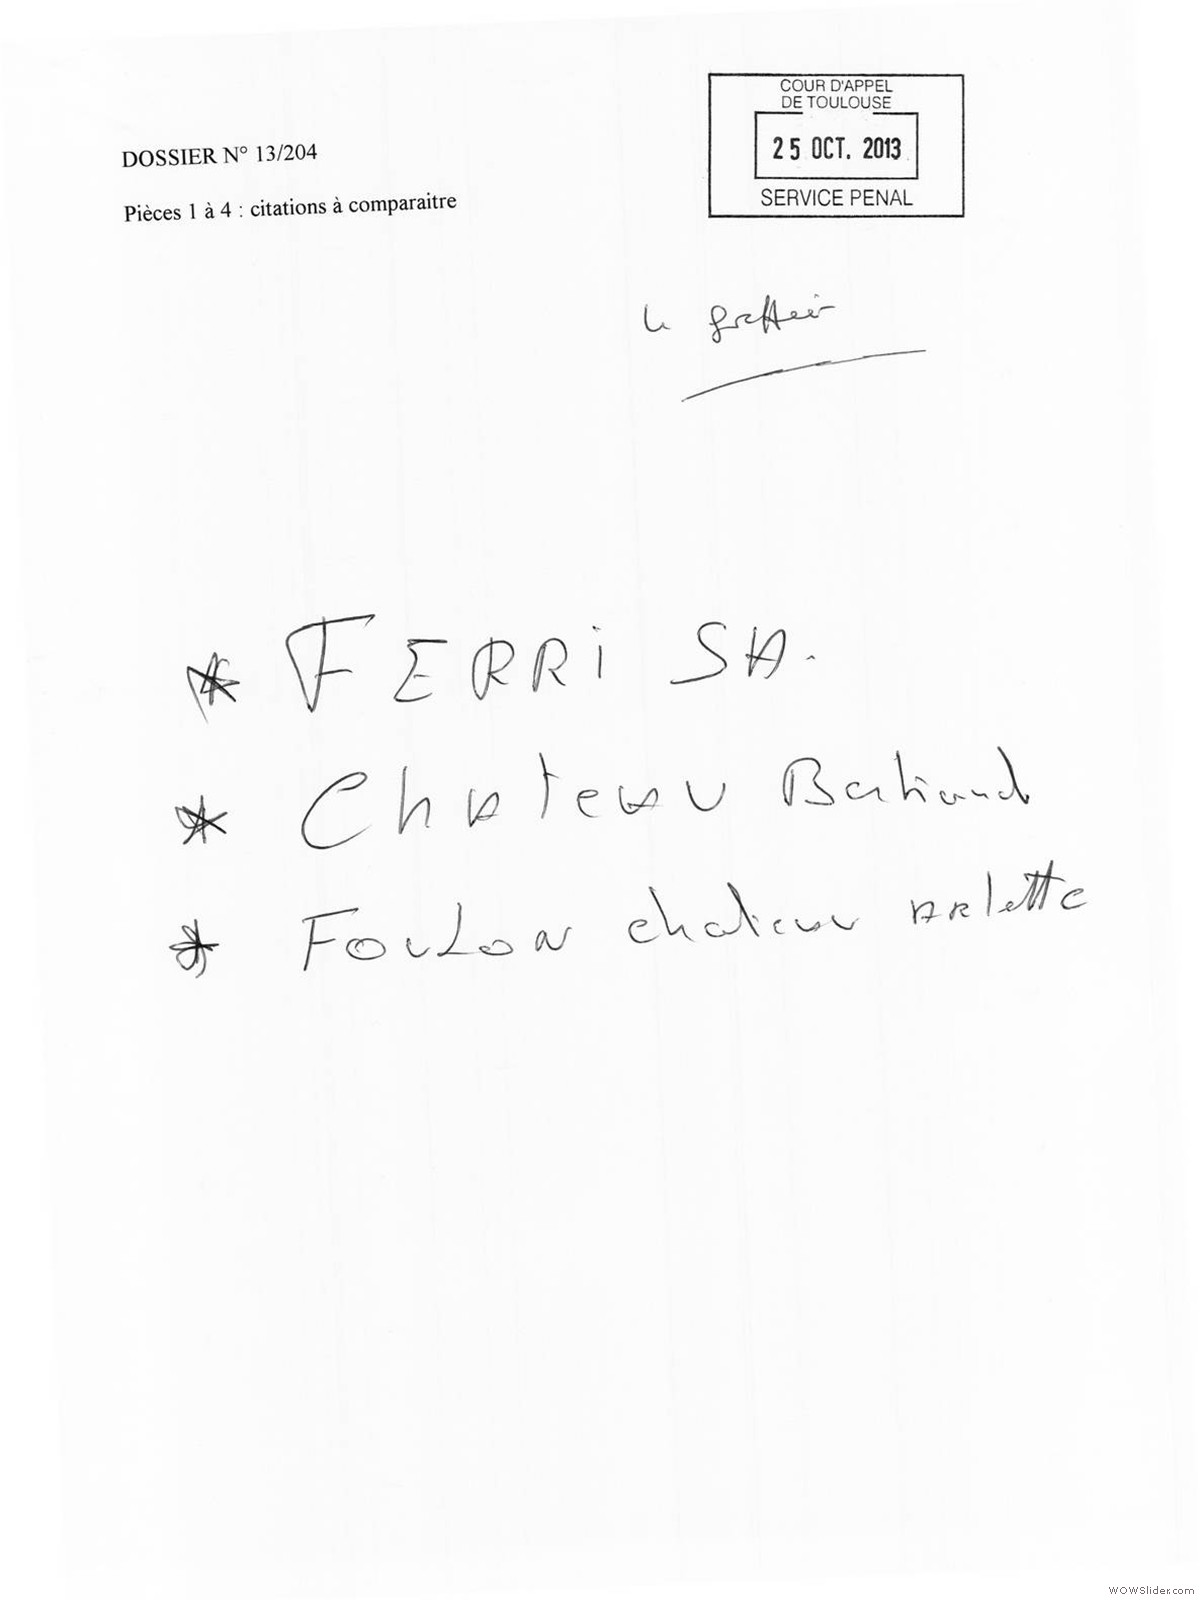 COUR D'APPEL
DE TOULOUSE
25 OCT. 2013
SERVICE PENAL
DOSSIER N° 13/204
Pièces 1 à 4 : citations à comparaitre
Le greffier
* FERRI SA.
* Chateau Bertrand
* Foulon chateau Arlette
WOWSlider.com